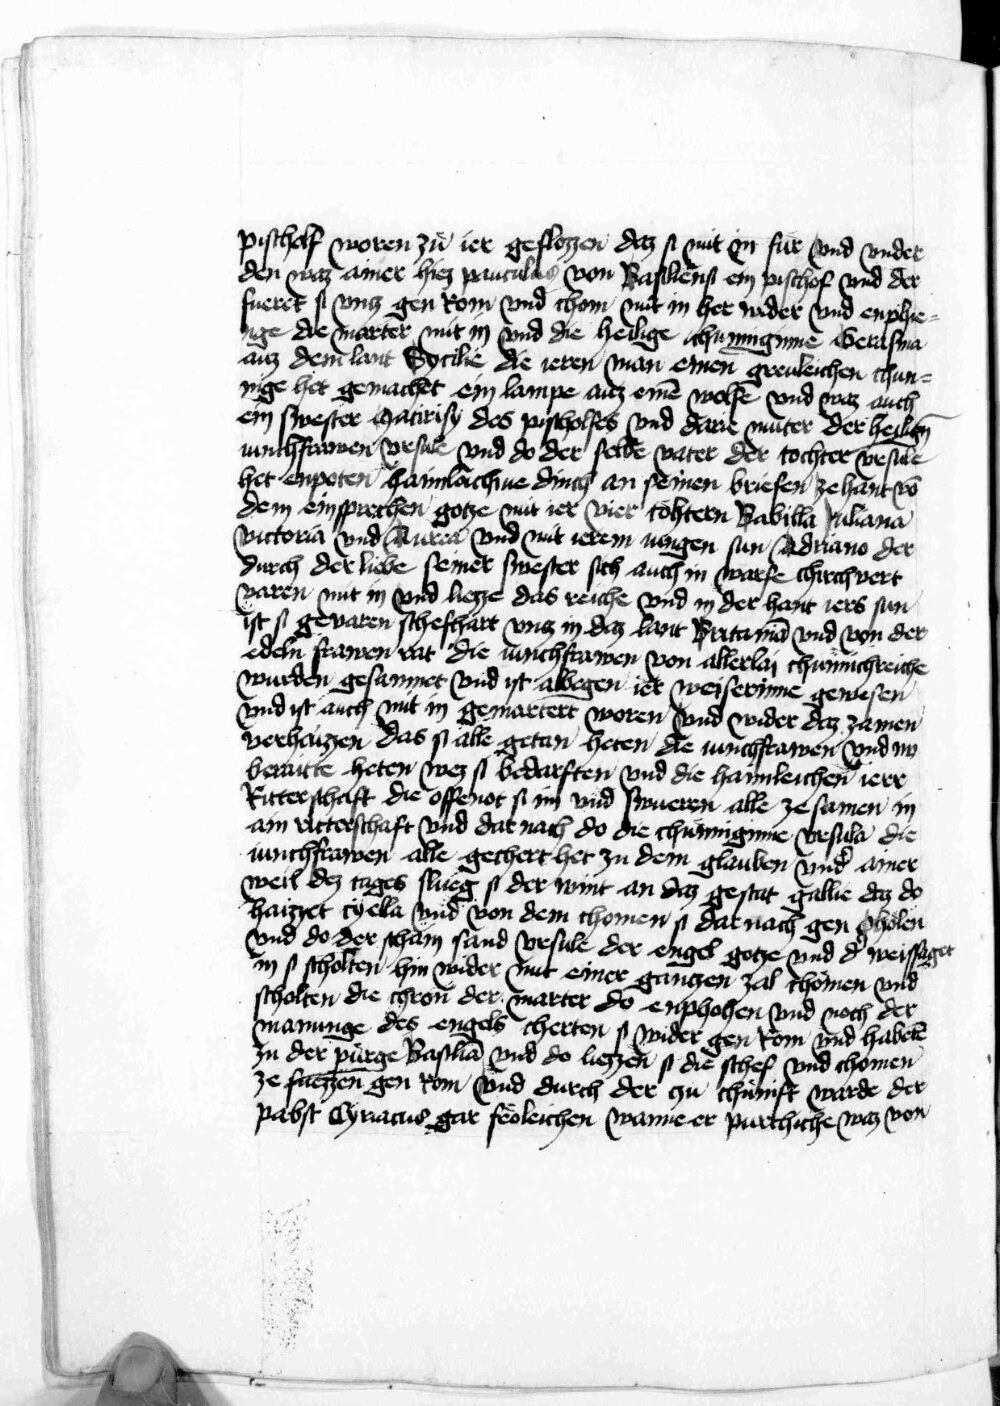 pischolf woren zu ier geflozzen daz si mit in für vnd vnder
den waz ainer hiez pantulus von Basiliensi ein pischof vnd der
fueret si vntz gen Rom vnd chom mit in her wider vnd enphie=
nge die marter mit in vnd die heilige chunniginne Gerasina
auz dem lant Sycilie die ieren man einen greuleichen chun=
nige het gemachet ein lampe auz einē wolfe vnd waz auch
ein swester Matirisy des pischolfes vnd darie muter der heilign̄
iunchfrawen vrsule vnd do der selbe vater der tochter vrsule
het enpoten haimleichiue dinch an seinen briefen ze hant vō
dem einsprechen gotze mit ier vier töhtern Babilla Iuliana
victoria vnd Aurea vnd mit ierem iungen sun Adriano der
durch der liebe seiner swester sich auch in warfe chirchvert
varen mit in vnd liezze das reiche vnd in der hant iers sun
ist si gevaren schefhart vntz in daz lant Britaniā vnd von der
edeln frawen rat die iunchfrawen von allerlai chünnichreiche
wurden gesamnet vnd ist albegen ier weiserinne gewesen
vnd ist auch mit in gemartert woren vnd wider daz zamen
verhaizzen das si alle getan heten die iunchfrawen vnd nv
beraitte heten wez si bedarften vnd die haimleichen ierr
Ritterschaft die offenot si im vnd swueren alle ze samen in
ain ritterschaft vnd dar nach do die chünniginne vrsula die
iunchfrawen alle gechert het zu dem glauben vnd ainer
weil dez tages slueg si der wint an daz gestat gallie daz do
haizzet cyella vnd von dem chomen si dar nach gen Chölen
vnd do der schain sand vrsule der engel gotze vnd d' weissaget
in si scholten hin wider mit einer gantzen zal chömen vnd
scholten die chron der marter do enphohen vnd noch der
manunge des engels cherten si wider gen Rom vnd habetē
zu der pürge Basiliā vnd do liezzen si die schef vnd chomen
ze fuezzen gen Rom vnd durch der zu chünift warde der
pabst Cyriacus gar fröleichen wanne er pürthiche waz von